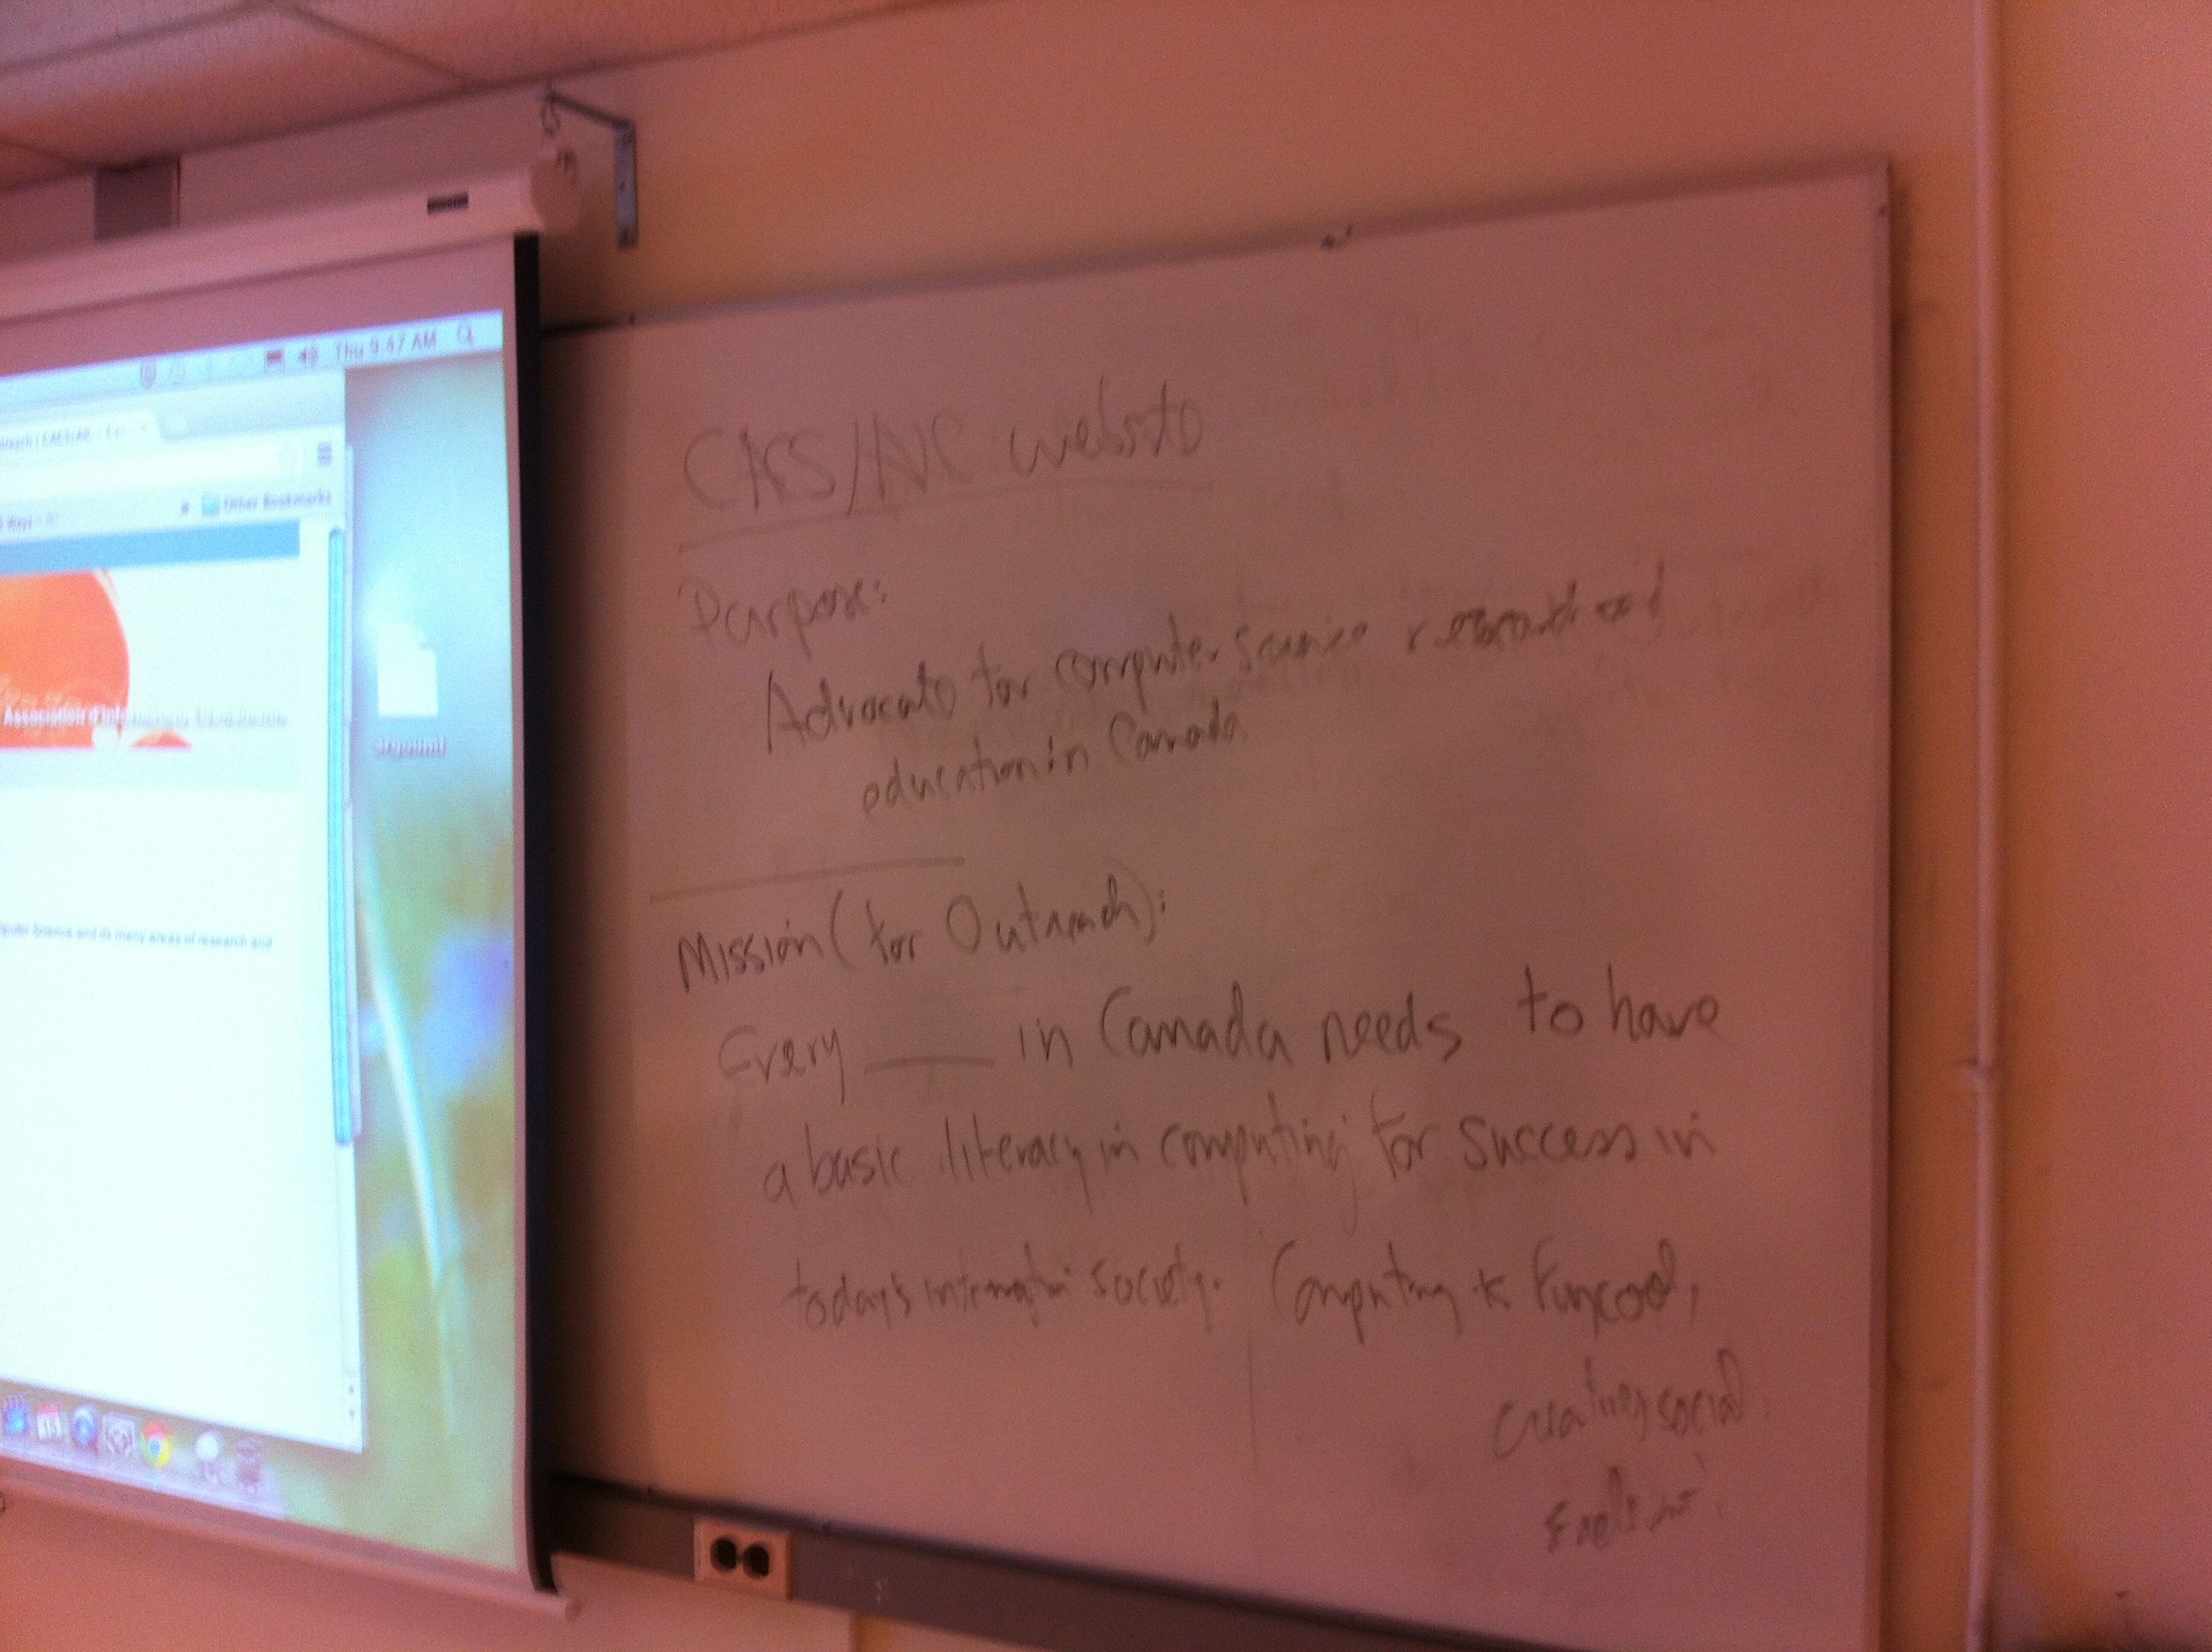 Thu 9:47 AM
Other Bookmarks
Association
Science and its many areas of research and
CACS/AIC website
Purpose:
Advocate for computer science research and
education in Canada
Mission (for Outreach):
Every ____ in Canada needs to have
a basic literacy in computing for success in
today's information society. Computing is fun, cool,
creative, social